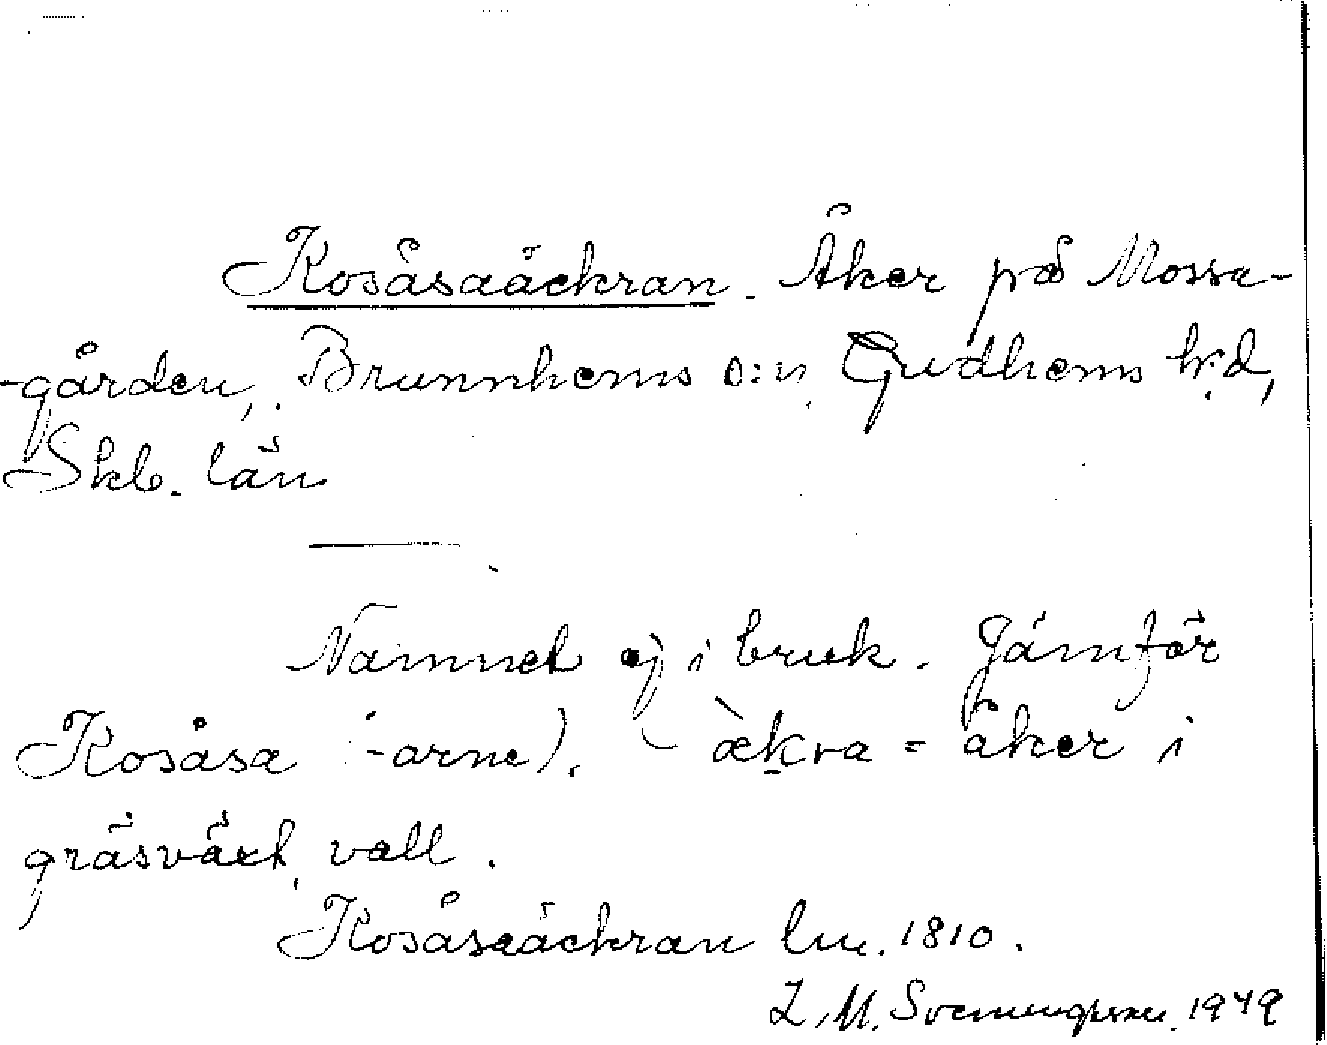 Kosåsaäckran. Åker på Mossa-
-gården, Brunnhems s:n, Gudhems hrd,
Skb. län
Namnet ej i bruk. Jämför
Kosåsa (-arne). - àḵra = åker i
gräsväxt, vall.
Kosåsaäckran lm. 1810.
L. M. Svenungsson. 1949